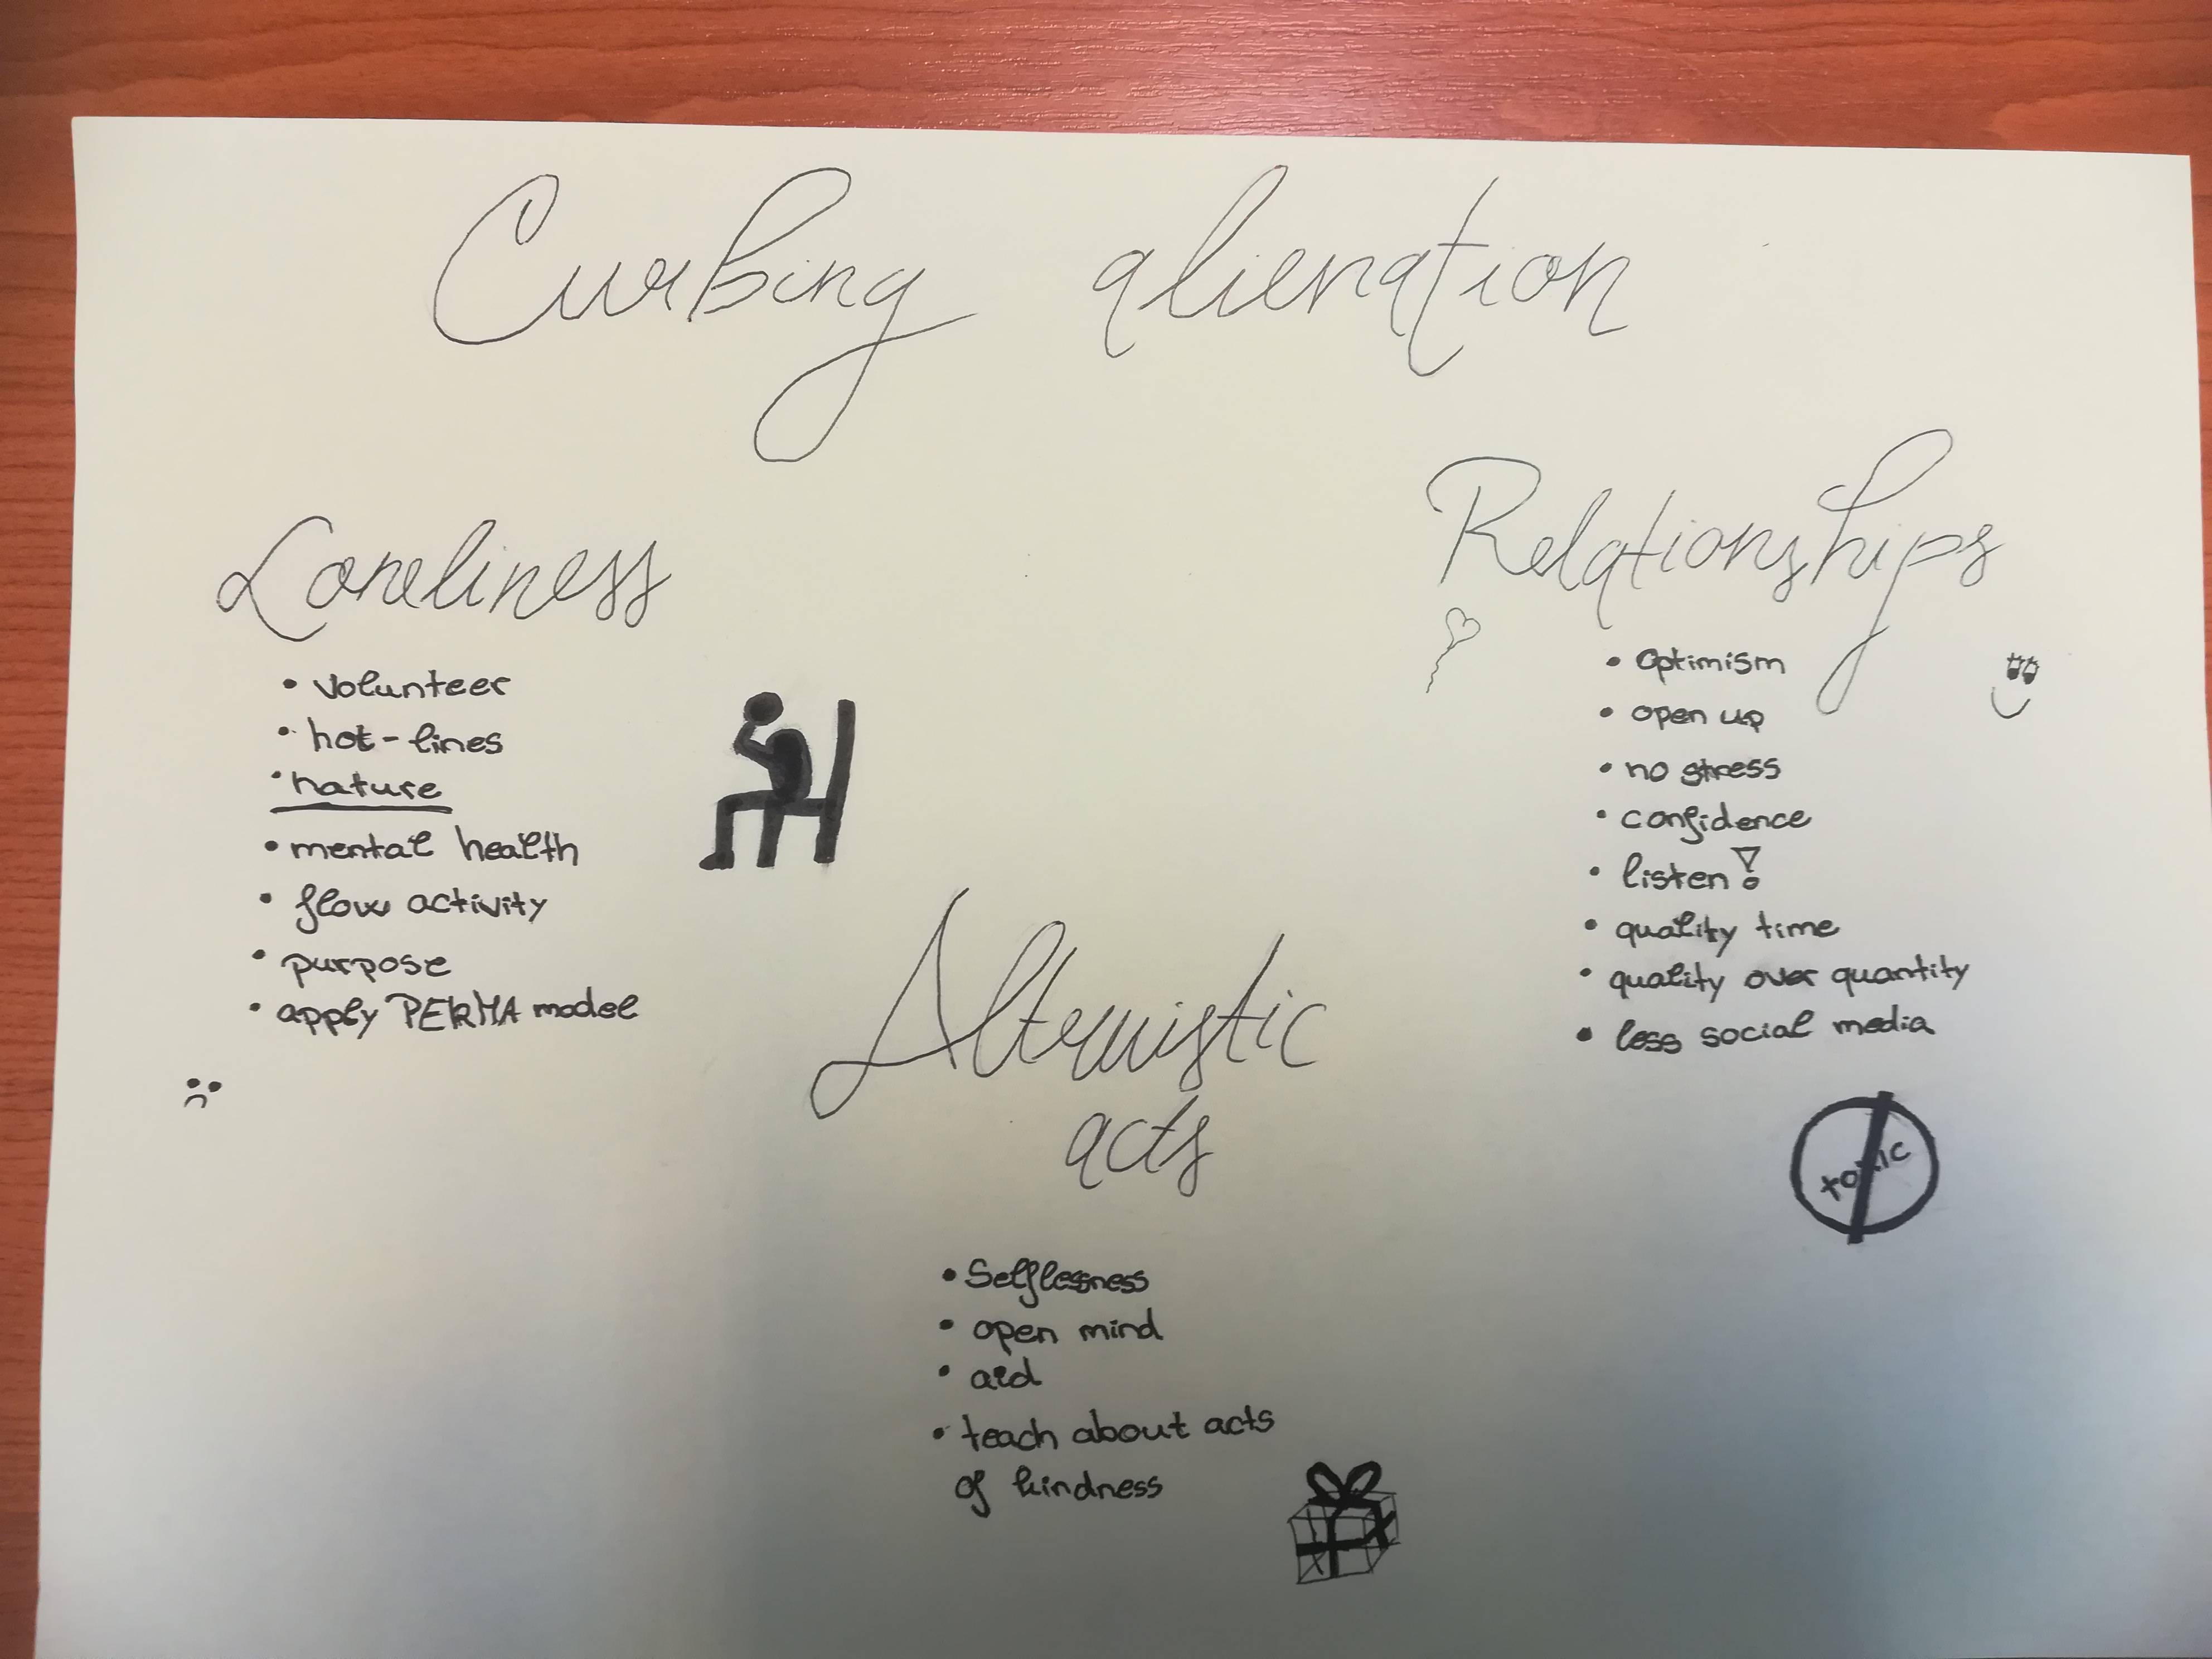 Curbing alienation
Loneliness
• volunteer
• hot-lines
• nature
• mental health
• flow activity
• purpose
• apply PERMA model
Relationships
• Optimism
• open up
• no stress
• confidence
• listen!
• quality time
• quality over quantity
• less social media
toxic
Altruistic
acts
• Selflessness
• open mind
• aid
• teach about acts
of kindness